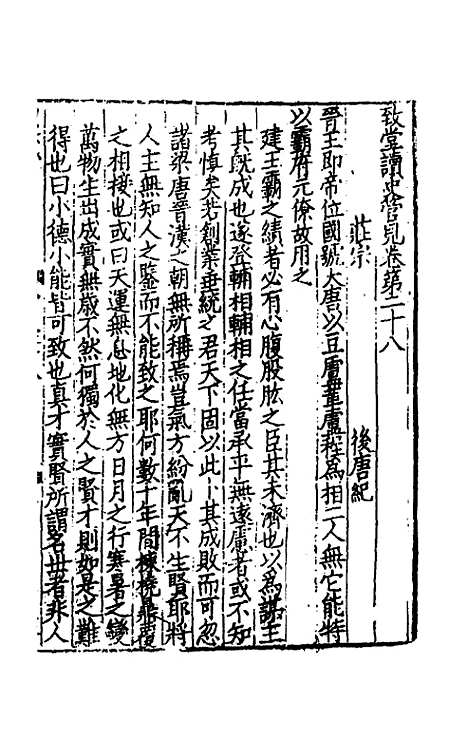 致堂讀史管見卷第二十八
莊宗　後唐紀
晉王即帝位國號大唐以豆盧革盧程為相二人無它能特
以霸府元僚故用之
建王霸之績者必有心腹股肱之臣其未濟也以為謀主
其既成也遂登輔相輔相之任當承平無遠慮者或不知
考慎矣若創業垂統之君天下固以此卜其成敗而可忽
諸梁唐晉漢之朝無所稱焉豈氣方紛亂天不生賢耶將
人主無知人之鑒而不能致之耶何數十年間棟橈鼎覆
之相接也或曰天運無息地化無方日月之行寒暑之變
萬物生出成實無歲不然何獨於人之賢才則如是之難
得也曰小德小能皆可致也真才實賢所謂名世者非人